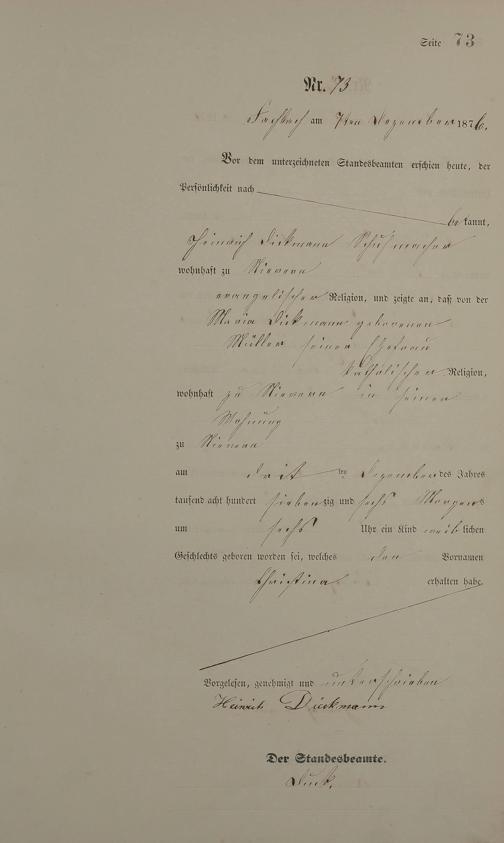 Seite 73
Nr. 73
Fachbach am 7ten Dezember 1876.
Vor dem unterzeichneten Standesbeamten erschien heute, der
Persönlichkeit nach
bekannt,
Heinrich Dickmann Schuhmacher
wohnhaft zu Nievern
evangelischer Religion, und zeigte an, daß von der
Maria Dickmann geborenen
Müller seiner Ehefrau
katholischer Religion,
wohnhaft zu Nievern in seiner
Wohnung
zu Nievern
am ten Dezember des Jahres
tausend acht hundert siebenzig und sechs Morgens
um sechs Uhr ein Kind weiblichen
Geschlechts geboren worden sei, welches den Vornamen
Christina erhalten habe.
Vorgelesen, genehmigt und unterschrieben
Heinrich Dickmann
Der Standesbeamte.